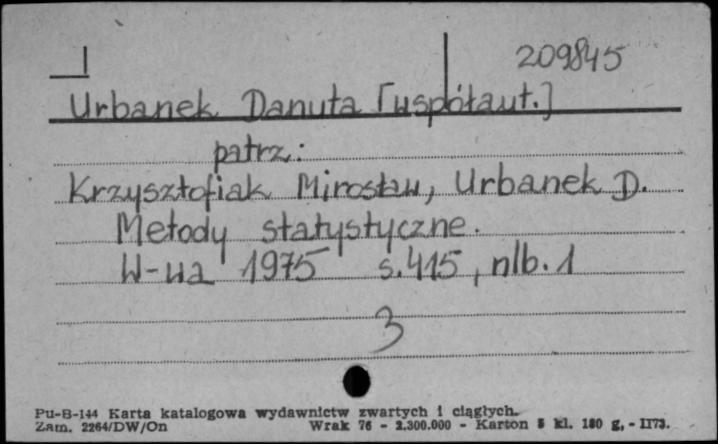 209845
Urbanek Danuta [współaut.]
patrz:
Krzysztofiak Mirosław, Urbanek D.
Metody statystyczne.
W-wa 1975 s. 415, nlb. 1
3
Pu-B-144 Karta katalogowa wydawnictw zwartych i ciągłych.
Zam. 2264/DW/On Wrak 76 - 2.300.000 - Karton 5 kl. 180 g. - II73.